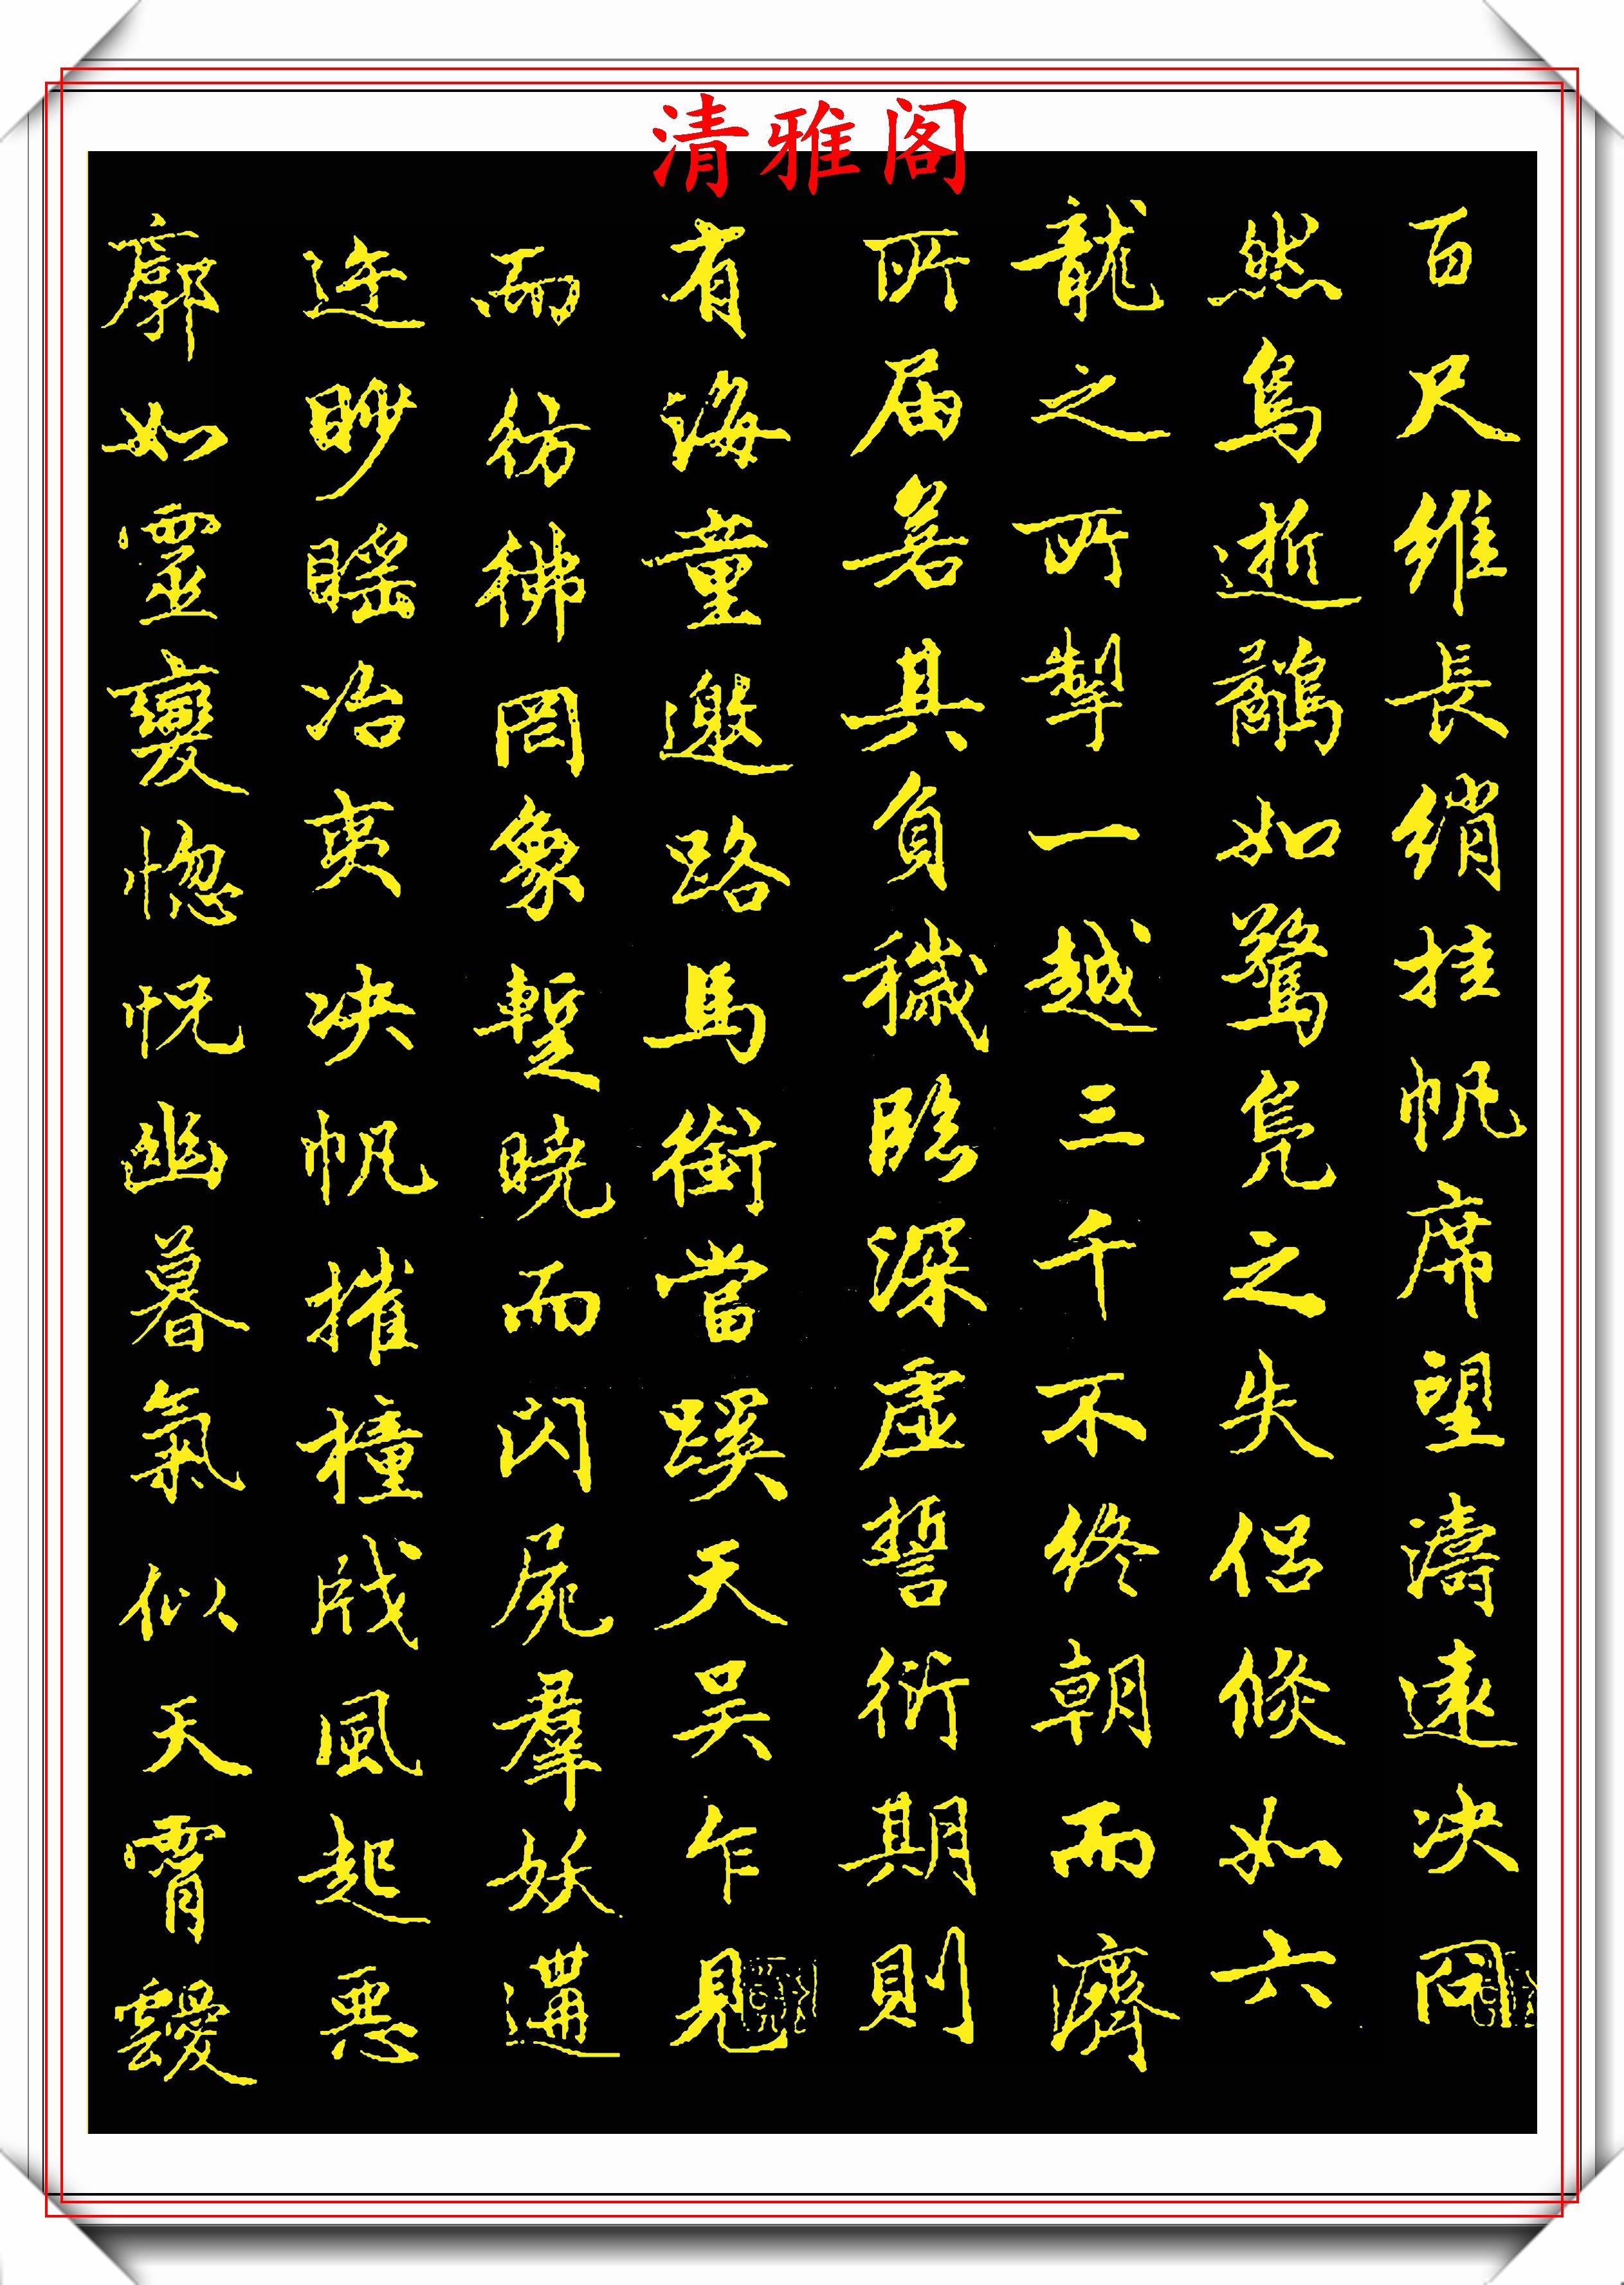 清雅阁
百尺維長綃挂帆席望濤遠决冋
然鳥逝鷸如驚鳧之失侶倏如六
龍之所掣一越三千不終朝而濟
所届若其負穢臨深虛誓衍期則
有海童邀路馬銜當蹊天吳乍見
而彷彿罔象暫曉而閃屍羣妖遘
迕眇䁘冶夷决帆摧橦戕風起惡
廓如靈變惚怳幽暮氣似天霄靉